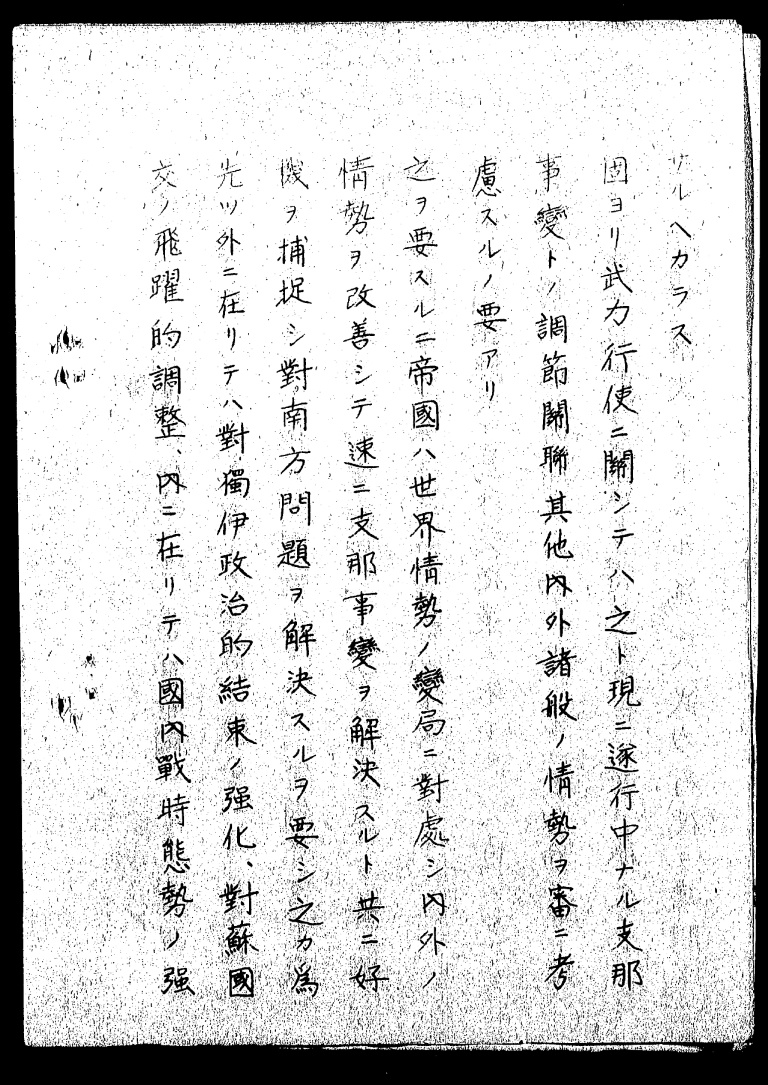 サルヘカラス
固ヨリ武力行使ニ關シテハ之ト現ニ遂行中ナル支那
事變トノ調節關聯其他內外諸般ノ情勢ヲ審ニ考
慮スルノ要アリ
之ヲ要スルニ帝國ハ世界情勢ノ變局ニ對處シ內外ノ
情勢ヲ改善シテ速ニ支那事變ヲ解決スルト共ニ好
機ヲ捕捉シ對南方問題ヲ解決スルヲ要シ之カ爲
先ツ外ニ在リテハ對獨伊政治的結束ノ強化、對蘇國
交ノ飛躍的調整、內ニ在リテハ國內戰時態勢ノ强